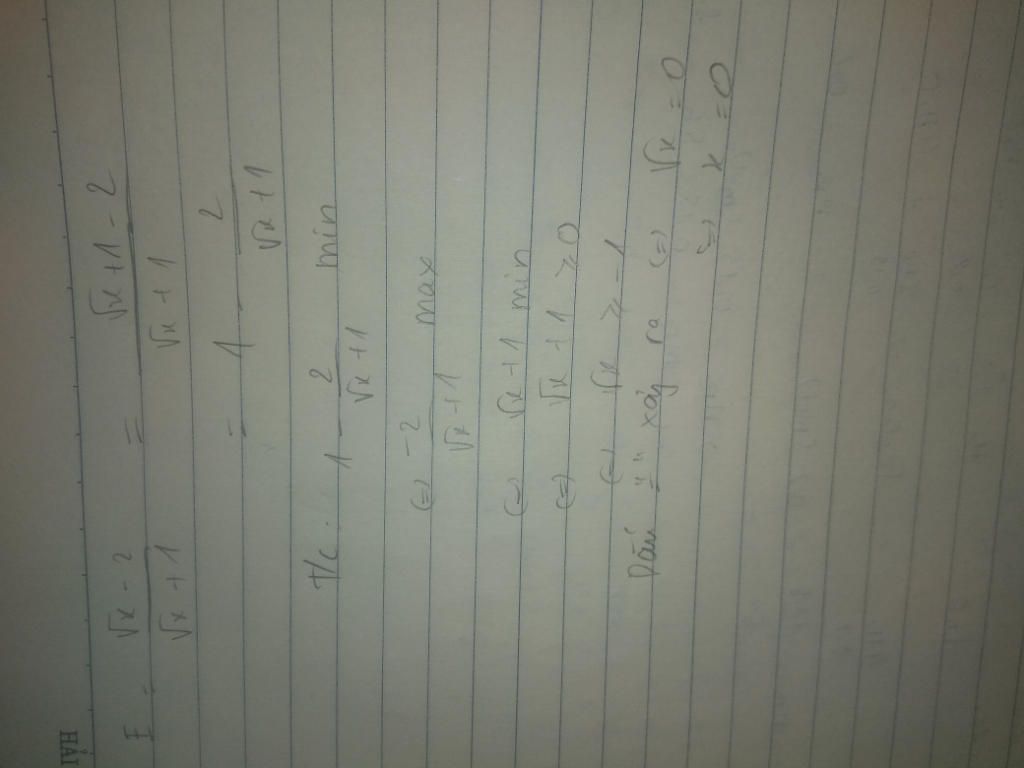 HẢI
E = √x - 2 / √x + 1 = √x + 1 - 2 / √x + 1
= 1 - 2 / √x + 1
t/c. 1 - 2 / √x + 1 min
(=) -2 / √x + 1 max
(=) √x + 1 min
(=) √x + 1 ≥ 0
(=) √x ≥ -1
Dấu "=" xảy ra (=) √x = 0
(=) x = 0